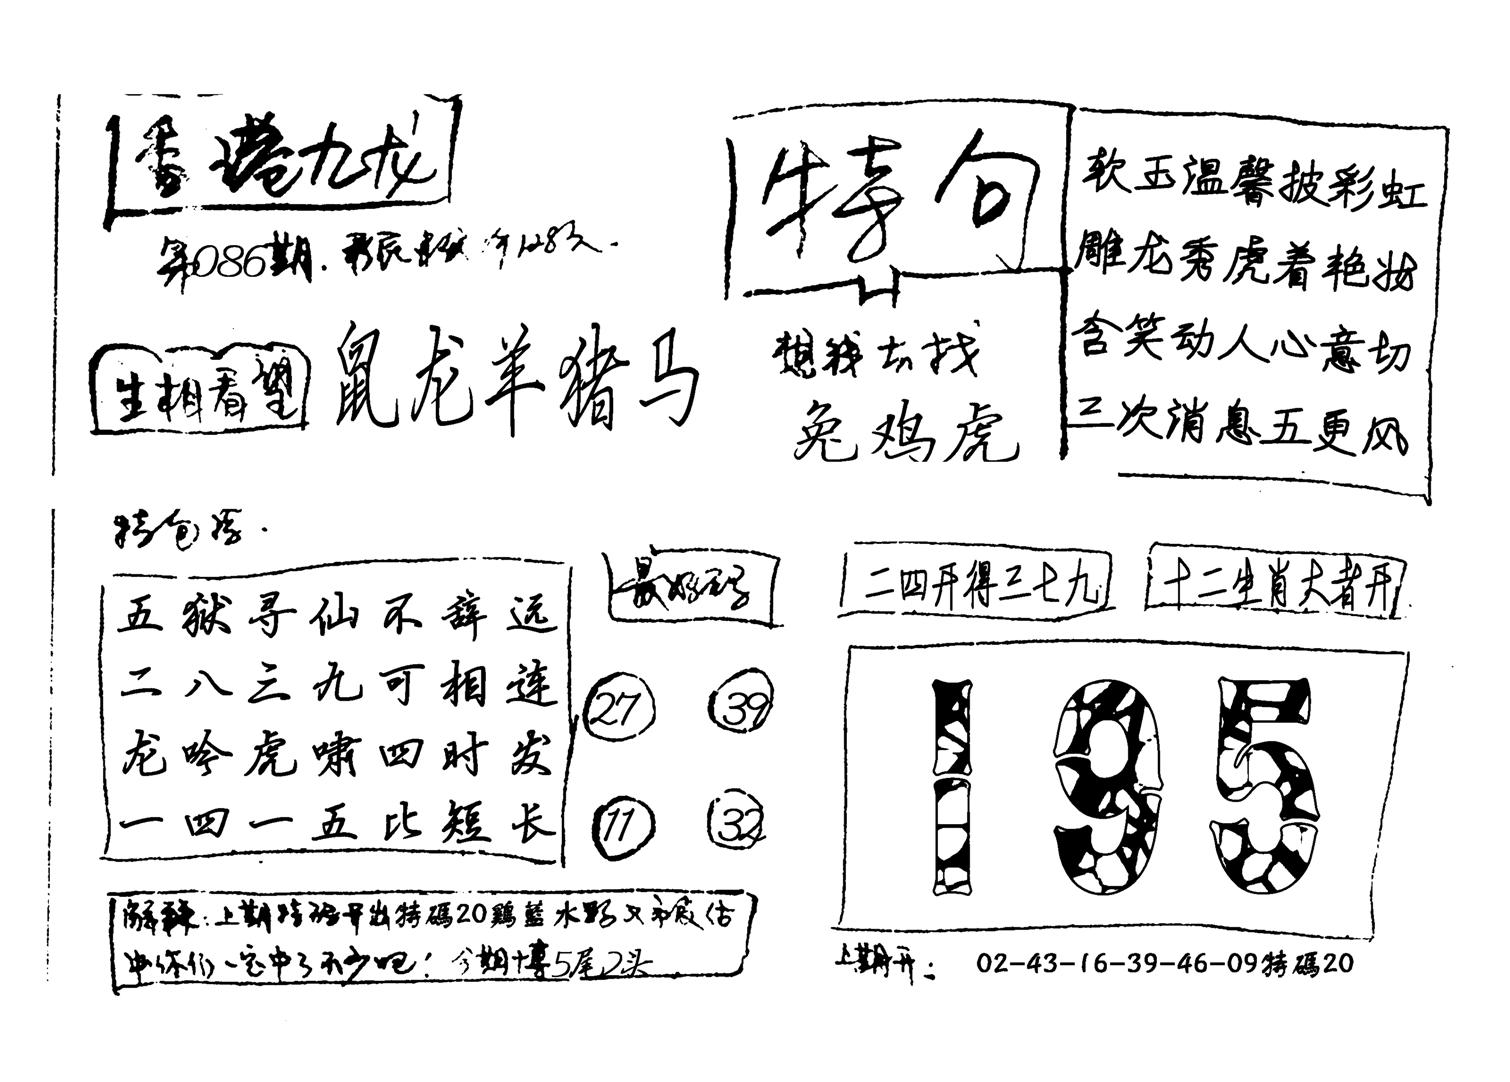 香港九龙
第086期.
生相看望
鼠龙羊猪马
特句
想钱去找
兔鸡虎
软玉温馨披彩虹
雕龙秀虎着艳妆
含笑动人心意切
三次消息五更风
特包
五狱寻仙不辞远
二八三九可相连
龙吟虎啸四时发
一四一五比短长
最好码
27 39
11 32
二四开得三七九
十二生肖大者开
195
上期特码开出特碼20鷄藍水
你们一定中了不少吧！今期博5尾2头
上期开：02-43-16-39-46-09特碼20